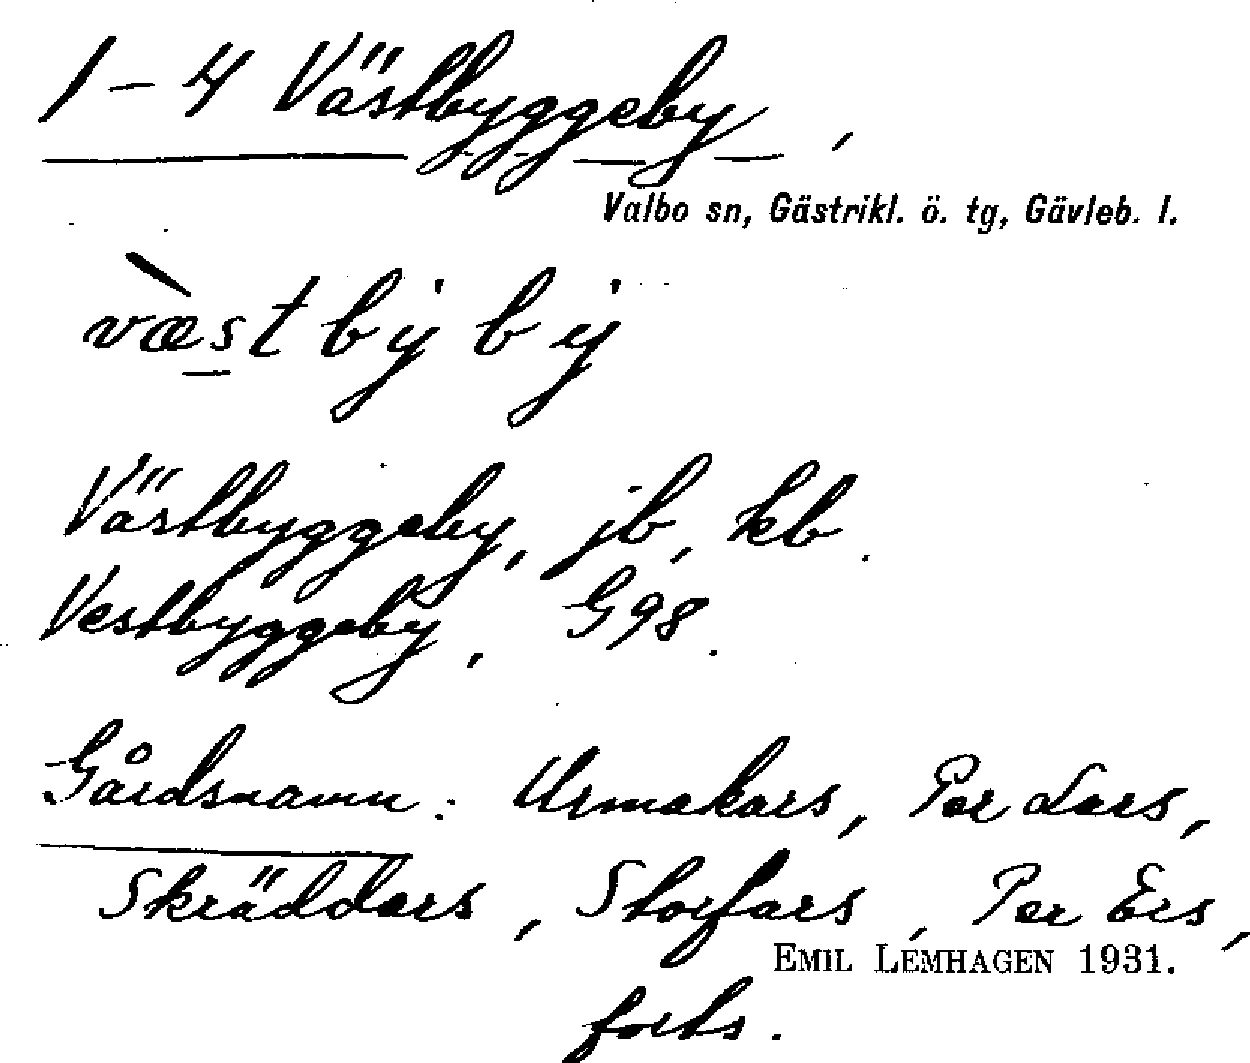 1-4 Västbyggeby,
Valbo sn, Gästrikl. ö. tg, Gävleb. l.
væ̀st bẏ bẏ
Västbyggeby, jb, kb.
Vestbyggeby, G98.
Gårdsnamn: Urmakars, Per Lars,
Skräddars, Storfars, Per Ers,
EMIL LEMHAGEN 1931.
forts.